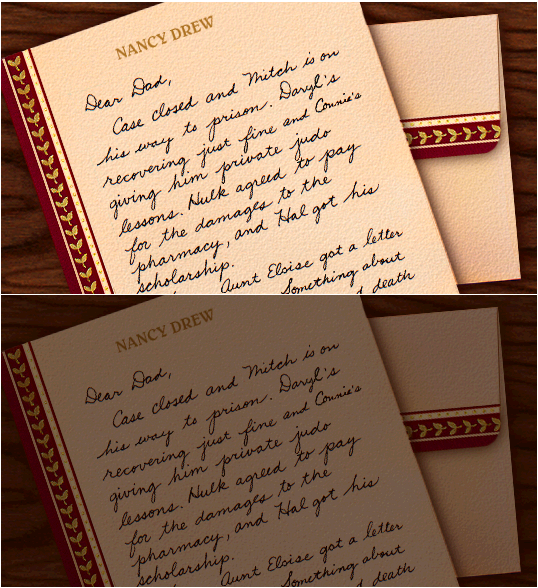 NANCY DREW
Dear Dad,
Case closed and Mitch is on
his way to prison. Daryl's
recovering just fine and Connie's
giving him private judo
lessons. Hulk agreed to pay
for the damages to the
pharmacy, and Hal got his
scholarship.
Aunt Eloise got a letter
Something about
death
NANCY DREW
Dear Dad,
Case closed and Mitch is on
his way to prison. Daryl's
recovering just fine and Connie's
giving him private judo
lessons. Hulk agreed to pay
for the damages to the
pharmacy, and Hal got his
scholarship.
Aunt Eloise got a letter
Something about
death